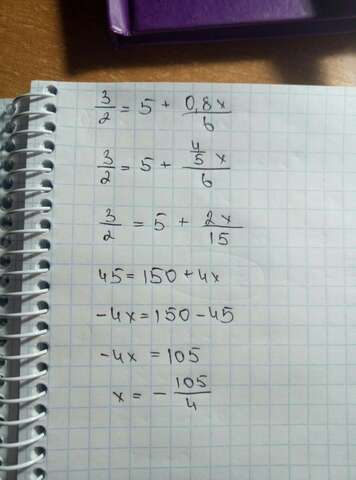 3/2 = 5 + 0,8x/6
3/2 = 5 + 4/5 x/6
3/2 = 5 + 2x/15
45 = 150 + 4x
-4x = 150 - 45
-4x = 105
x = - 105/4